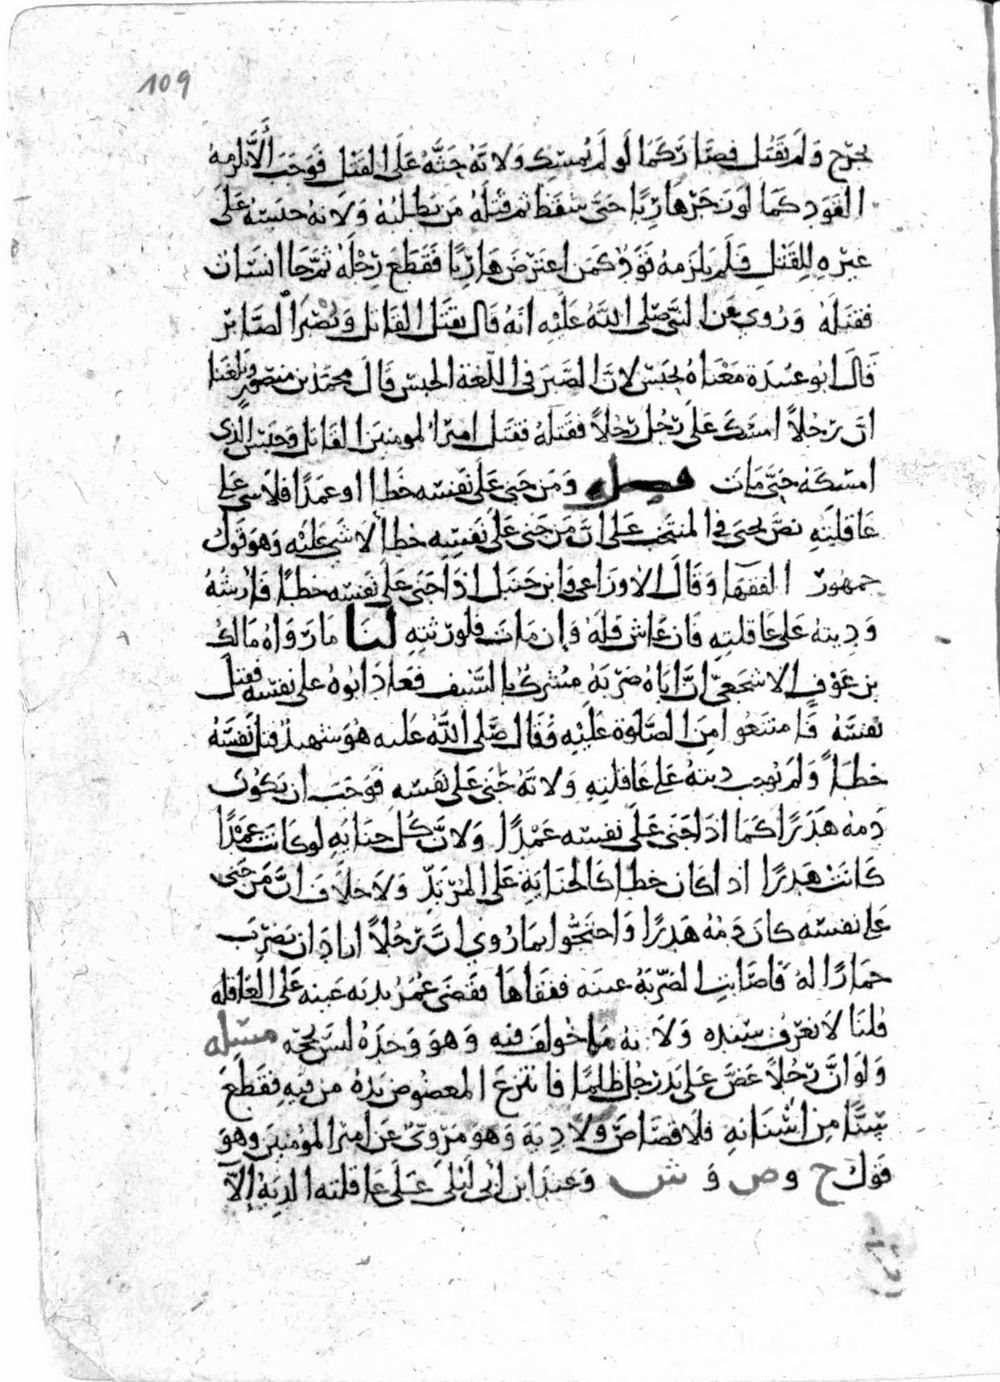 109
بجرح ولم يقتل فصار كما لو لم يمسك ولانه حثه على القتل فوجب ألا يلزمه
القود كما لو زجر هاربا حتى سقط ثم قتله من يطلبه ولانه حبسه على
غيره للقتل فلم يلزمه قود كمن اعترض هاربا فقطع رجله ثم جا انسان
فقتله وروي عن النبي صلى الله عليه انه قال يقتل القاتل ويصبر الصابر
قال ابو عبيدة معناه يحبس لان الصبر في اللغة الحبس قال محمد بن منصور وبلغنا
ان رجلا امسك على رجل رجلا فقتله فقتل امير المومنين القاتل وحبس الذي
امسكه حتى مات فصل ومن جنى على نفسه خطا او عمدا فلا شي على
عاقلته نص يحيى في المنتخب على ان من جنى على نفسه خطا لا شي عليه وهو قول
جمهور الفقها وقال الاوزاعي وابن حنبل اذا جنى على نفسه خطا فارشه
وديته على عاقلته فان عاش فله وان مات فلورثته لنا ما رواه مالك
بن عوف الاشجعي ان اباه ضربه مشرك بالسيف فعاد ابوه على نفسه فقتل
نفسه فامتنعوا من الصلوة عليه فقال صلى الله عليه هو شهيد قتل نفسه
خطا ولم يوجب ديته على عاقلته ولانه جنى على نفسه فوجب ان يكون
دمه هدرا كما اذا جنى على نفسه عمدا ولان كل جنايه لو كانت عمدا
كانت هدرا اذا كان خطا كالجناية على المرتد ولا خلاف ان من جنى
على نفسه كان دمه هدرا واحتجوا بما روي ان رجلا اراد ان يضرب
حمارا له فاصابت الضربة عينه ففقاها فقضى عمر بديه عينه على العاقله
قلنا لا نعرف سنده ولانه مما خولف فيه وهو وحده ليس بحجه مسئله
ولو ان رجلا عض على يد رجل ظلما فانتزع المعضوض يده من فيه فقطع
سنا من اسنانه فلا قصاص ولا دية وهو مروي عن امير المومنين وهو
قول ح و ص و ش وعند ابن ابي ليلى على عاقلته الديه إلا